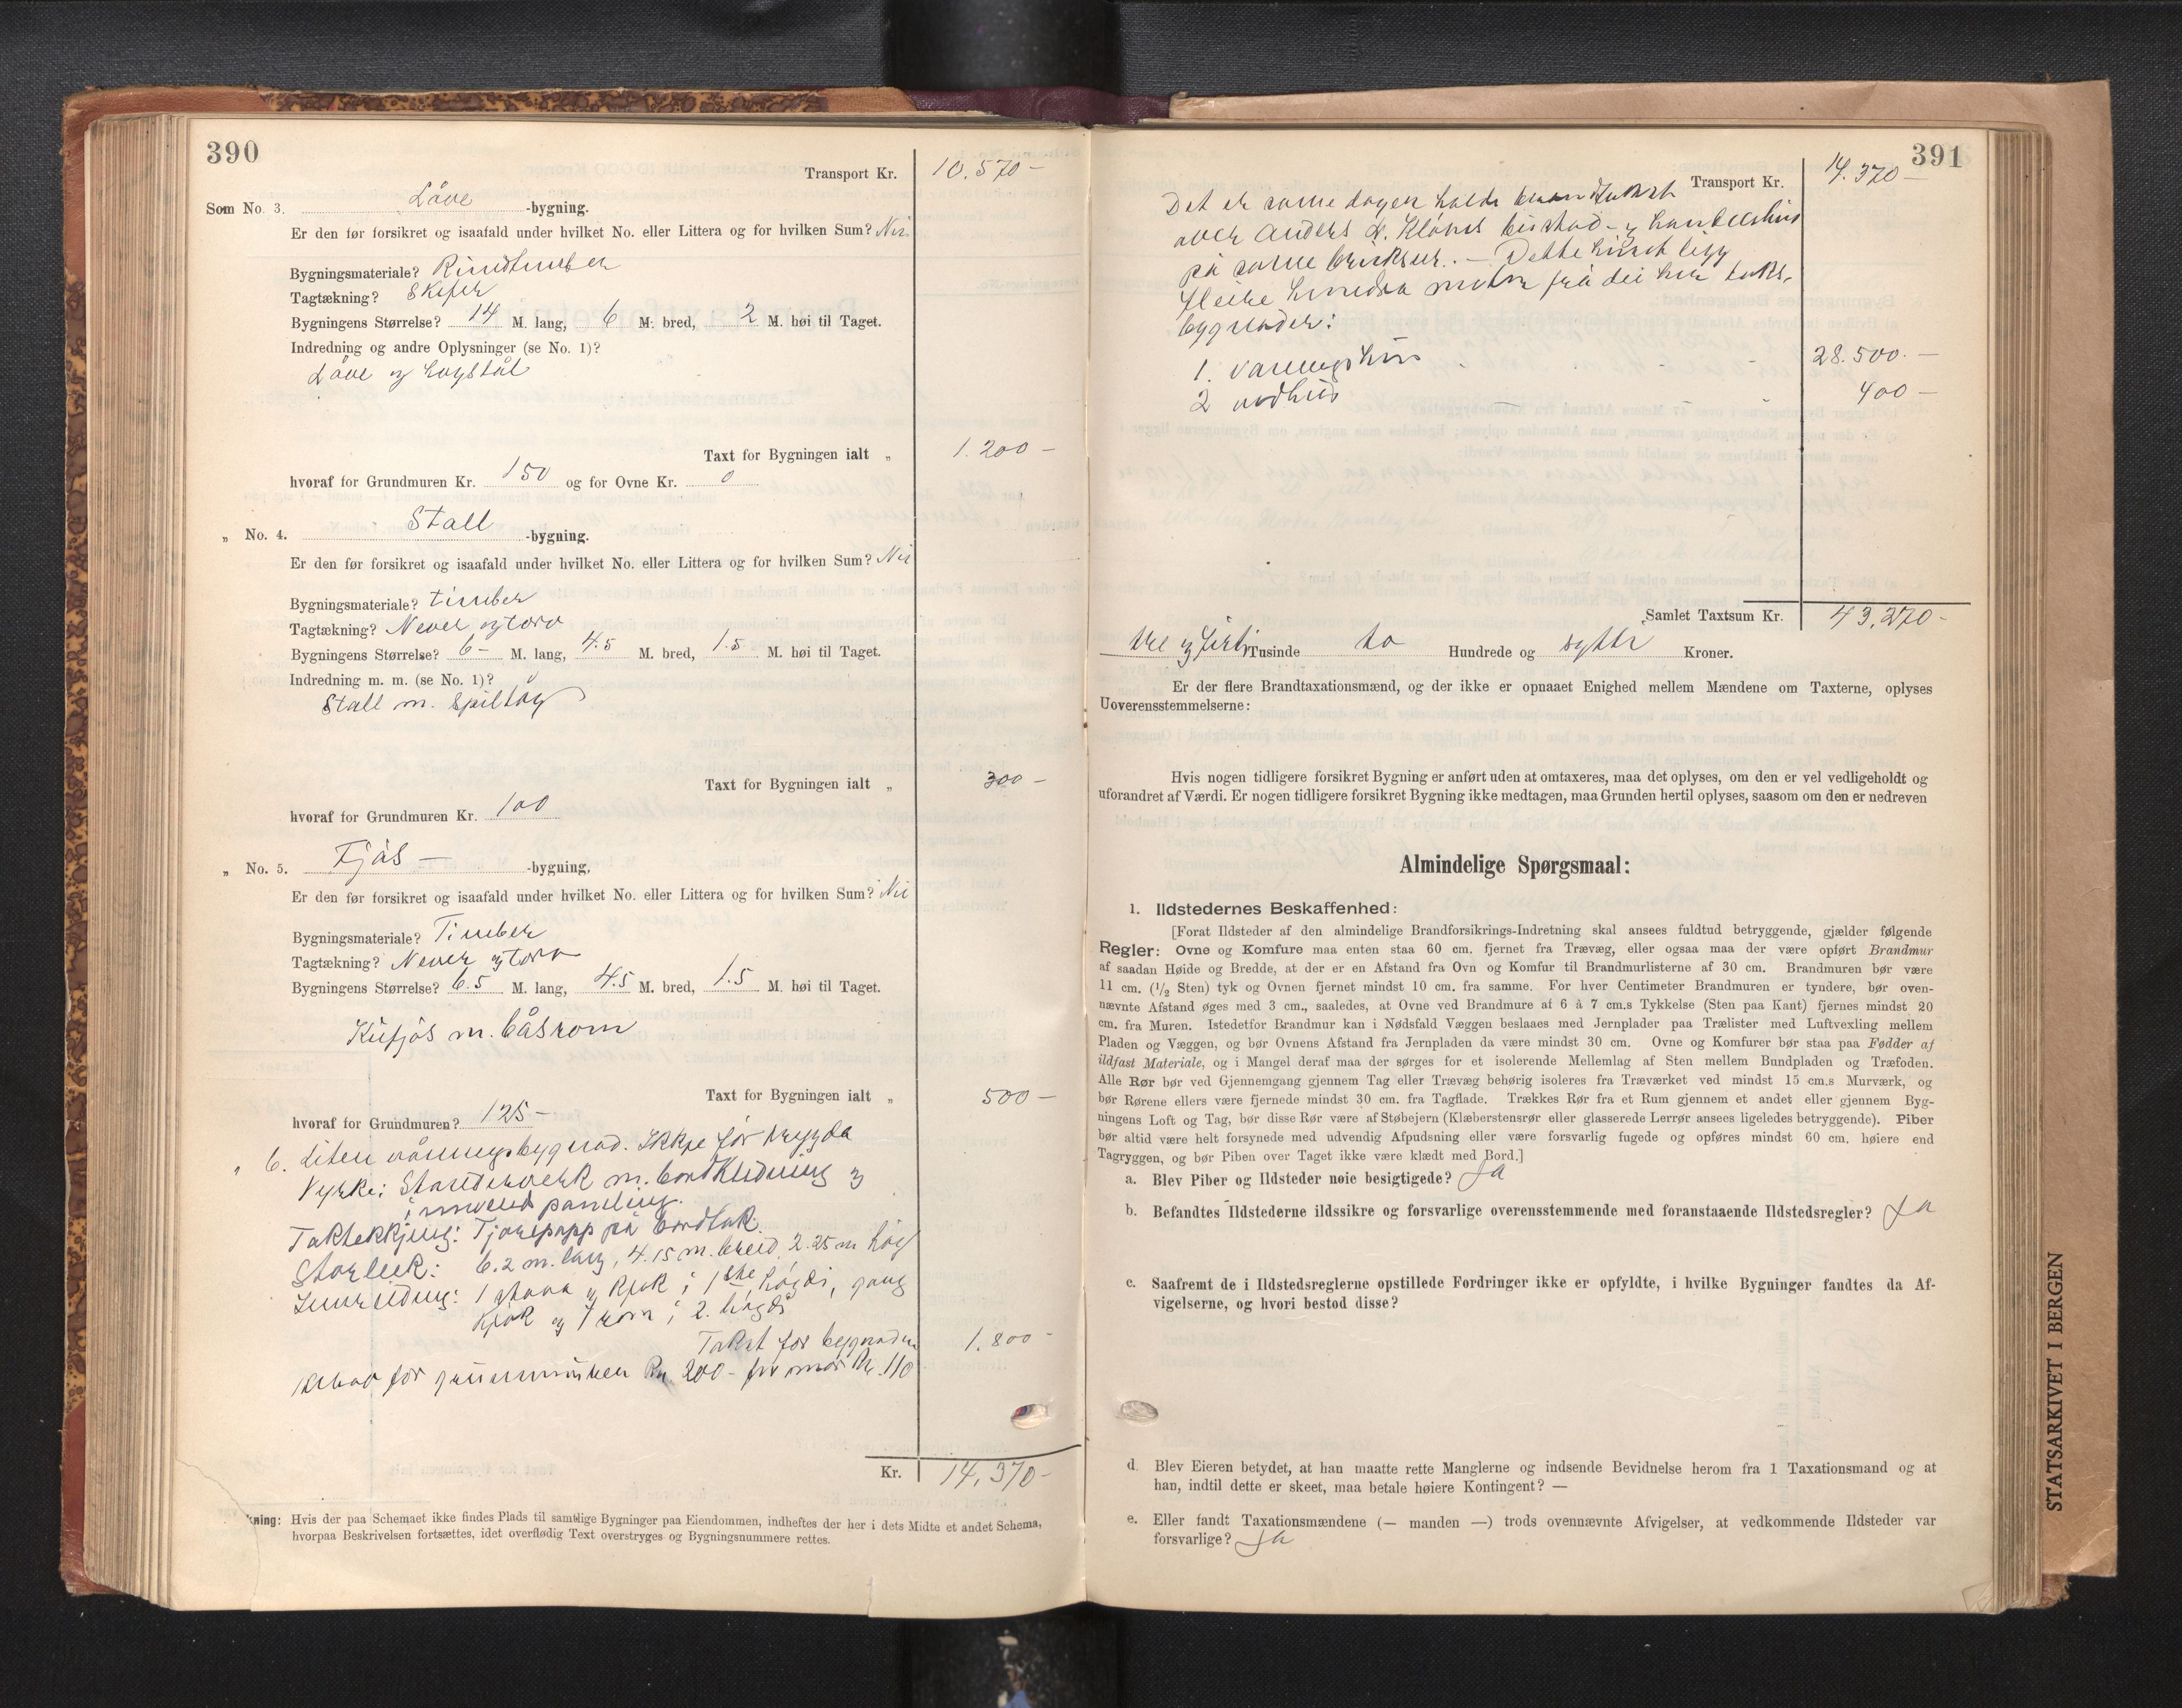 390
Transport Kr. 10.570 —
Som No. 3. Låve -bygning.
Er den før forsikret og isaafald under hvilket No. eller Littera og for hvilken Sum? Nei
Bygningsmateriale? Rindtimber
Tagtækning? Skifer
Bygningens Størrelse? 14 M. lang, 6 M. bred, 2 M. høi til Taget.
Indredning og andre Oplysninger (se No. 1)?
Låve og høystål
Taxt for Bygningen ialt „ 1.200 —
hvoraf for Grundmuren Kr. 150 og for Ovne Kr. 0
„ No. 4. Stall -bygning.
Er den før forsikret og isaafald under hvilket No. eller Littera og for hvilken Sum? Nei
Bygningsmateriale? timber
Tagtækning? Never og torv
Bygningens Størrelse? 6 — M. lang, 4.5 M. bred, 1.5 M. høi til Taget.
Indredning m. m. (se No. 1)?
Stall m. spiltåg
Taxt for Bygningen ialt „ 300 —
hvoraf for Grundmuren Kr. 100
„ No. 5. Fjås — -bygning,
Er den før forsikret og isaafald under hvilket No. eller Littera og for hvilken Sum? Nei
Bygningsmateriale? Timber
Tagtækning? Never og torv
Bygningens Størrelse? 6.5 M. lang, 4.5 M. bred, 1.5 M. høi til Taget.
Kufjås m. båsrom
Taxt for Bygningen ialt „ 500 —
hvoraf for Grundmuren? 125 —
„ 6. Liten våningsbygnad. Ikkje før trygda
Vyrke: Standerverk m. bordkledning og
innvend paneling.
Taktekkjing: Tjørepapp på bordtak
Storleik: 6.2 m. lang, 4.15 m. breid, 2.25 m høg
Innreiding: 1 stova og kjøk i 1ste høgdi, gang
kjøk og 1 rom i 2. høgdi
Takst for bygnaden 1.800 —
herav for grunnmuren Kr. 200 — for omnar Kr. 110
Kr. 14,370 —
kning: Hvis der paa Schemaet ikke findes Plads til samtlige Bygninger paa Eiendommen, indheftes der her i dets Midte et andet Schema,
hvorpaa Beskrivelsen fortsættes, idet overflødig Text overstryges og Bygningsnummere rettes.
391
Transport Kr. 14.370 —
Det er same dagen halde brandtakst
over Anders A. Kløves bustad- og handelshus
på same bruksnr. — Dette huset ligg
fleire hundra meter frå dei her taks.
bygnader:
1. våningshus 28.500. —
2 vedhus 400 —
Samlet Taxtsum Kr. 43,270 —
tre og førti Tusinde to Hundrede og sytti Kroner.
Er der flere Brandtaxationsmænd, og der ikke er opnaaet Enighed mellem Mændene om Taxterne, oplyses
Uoverensstemmelserne:
Hvis nogen tidligere forsikret Bygning er anført uden at omtaxeres, maa det oplyses, om den er vel vedligeholdt og
uforandret af Værdi. Er nogen tidligere forsikret Bygning ikke medtagen, maa Grunden hertil oplyses, saasom om den er nedreven
Almindelige Spørgsmaal:
1. Ildstedernes Beskaffenhed:
[Forat Ildsteder af den almindelige Brandforsikrings-Indretning skal ansees fuldtud betryggende, gjælder følgende
Regler: Ovne og Komfure maa enten staa 60 cm. fjernet fra Trævæg, eller ogsaa maa der være opført Brandmur
af saadan Høide og Bredde, at der er en Afstand fra Ovn og Komfur til Brandmurlisterne af 30 cm. Brandmuren bør være
11 cm. (1/2 Sten) tyk og Ovnen fjernet mindst 10 cm. fra samme. For hver Centimeter Brandmuren er tyndere, bør oven-
nævnte Afstand øges med 3 cm., saaledes, at Ovne ved Brandmure af 6 à 7 cm.s Tykkelse (Sten paa Kant) fjernes mindst 20
cm. fra Muren. Istedetfor Brandmur kan i Nødsfald Væggen beslaaes med Jernplader paa Trælister med Luftvexling mellem
Pladen og Væggen, og bør Ovnens Afstand fra Jernpladen da være mindst 30 cm. Ovne og Komfurer bør staa paa Fødder af
ildfast Materiale, og i Mangel deraf maa der sørges for et isolerende Mellemlag af Sten mellem Bundpladen og Træfoden.
Alle Rør bør ved Gjennemgang gjennem Tag eller Trævæg behørig isoleres fra Træværket ved mindst 15 cm.s Murværk, og
bør Rørene ellers være fjernede mindst 30 cm. fra Tagflade. Trækkes Rør fra et Rum gjennem et andet eller gjennem Byg-
ningens Loft og Tag, bør disse Rør være af Støbejern (Klæberstensrør eller glasserede Lerrør ansees ligeledes betryggende). Piber
bør altid være helt forsynede med udvendig Afpudsning eller være forsvarlig fugede og opføres mindst 60 cm. høiere end
Tagryggen, og bør Piben over Taget ikke være klædt med Bord.]
a. Blev Piber og Ildsteder nøie besigtigede? Ja
b. Befandtes Ildstederne ildssikre og forsvarlige overensstemmende med foranstaaende Ildstedsregler? Ja
c. Saafremt de i Ildstedsreglerne opstillede Fordringer ikke er opfyldte, i hvilke Bygninger fandtes da Af-
vigelserne, og hvori bestod disse?
d. Blev Eieren betydet, at han maatte rette Manglerne og indsende Bevidnelse herom fra 1 Taxationsmand og at
han, indtil dette er skeet, maa betale høiere Kontingent? —
e. Eller fandt Taxationsmændene (— manden —) trods ovennævnte Afvigelser, at vedkommende Ildsteder var
forsvarlige? Ja
STATSARKIVET I BERGEN